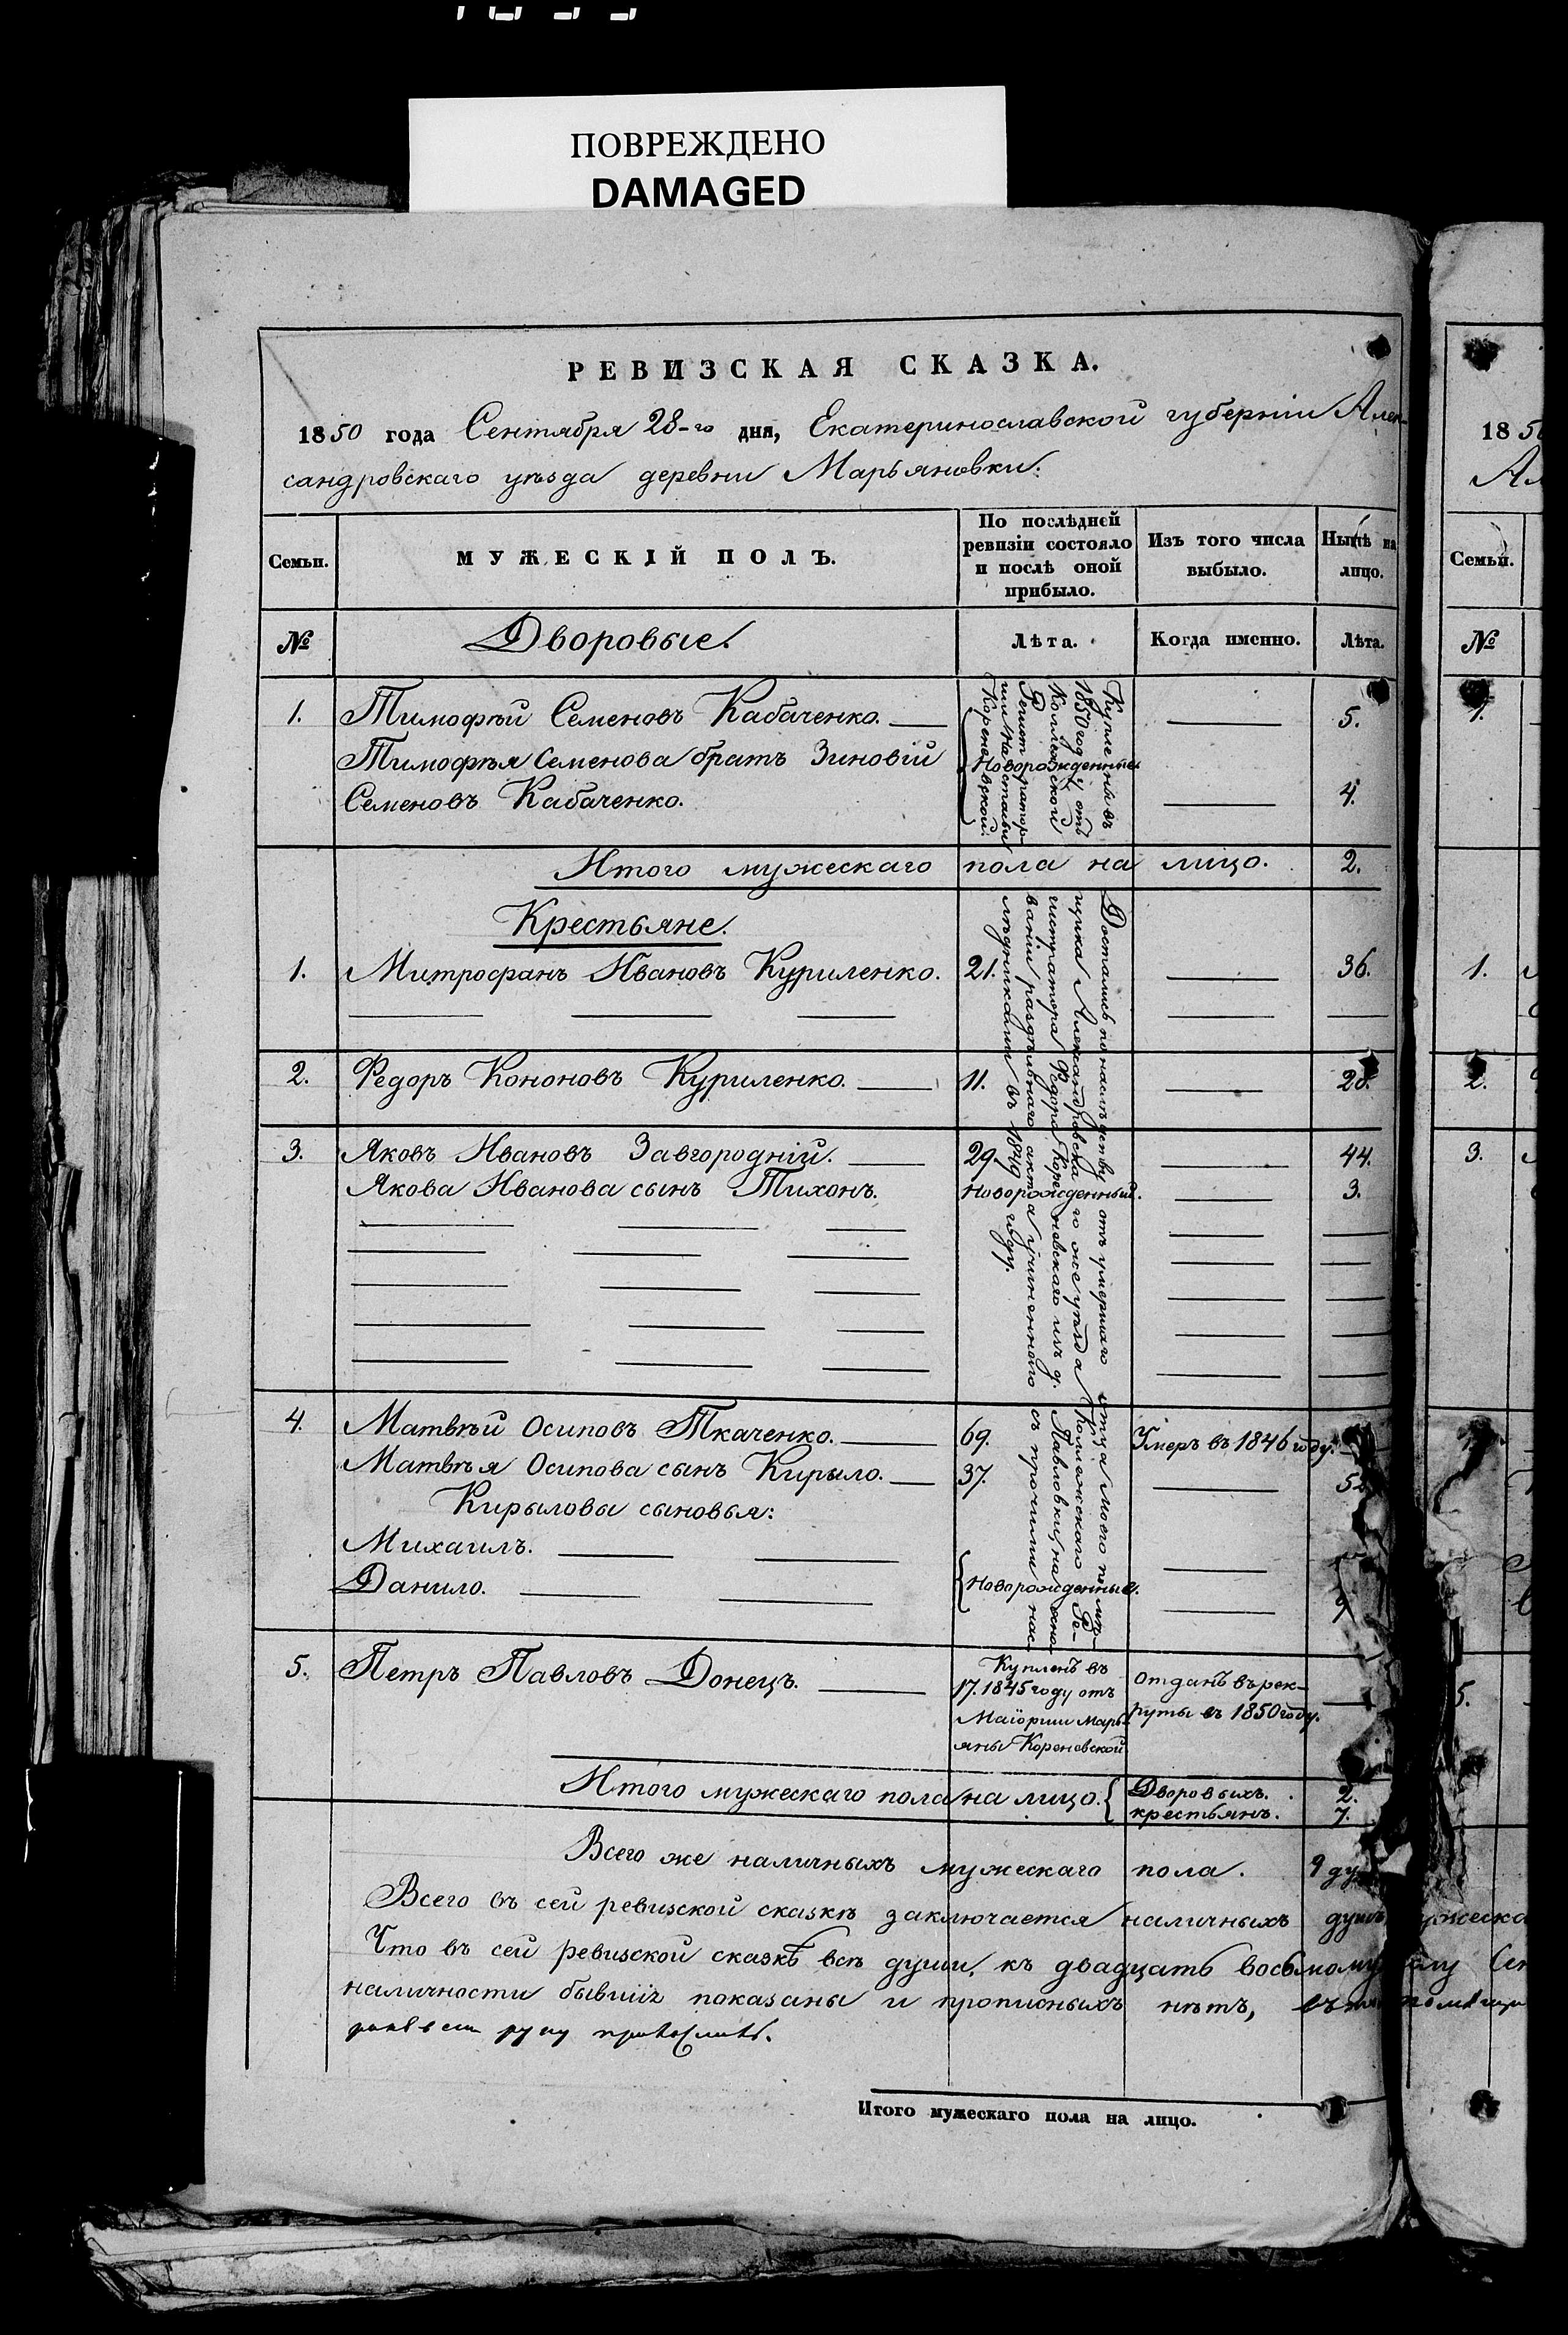 ПОВРЕЖДЕНО
DAMAGED
РЕВИЗСКАЯ СКАЗКА.
1850 года Сентября 28-го дня, Екатеринославской губерніи Алек-
сандровскаго уѣзда деревни Марьяновки:
Семьи.
МУЖЕСКІЙ ПОЛЪ.
По послѣдней
ревизіи состояло
и послѣ оной
прибыло.
Изъ того числа
выбыло.
Нынѣ на
лицо.
№ Дворовые. Лѣта. Когда именно. Лѣта.
1. Тимофѣй Семеновъ Кабаченко. 5.
Тимофѣя Семенова братъ Зиновій
Новорожденные
Семеновъ Кабаченко. 4.
Куплены въ
1850 году отъ
Коллежской
Регистратор-
ши Настасьи
Кореневской.
Итого мужескаго пола на лицо. 2.
Крестьяне.
1. Митрофанъ Ивановъ Куриленко. 21. 36.
2. Федоръ Кононовъ Куриленко. 11.
3. Яковъ Ивановъ Завгородній. 29. 44.
Якова Иванова сынъ Тихонъ. Новорожденный. 3.
4. Матвѣй Осиповъ Ткаченко. 69. Умеръ въ 1846 году.
Матвѣя Осипова сынъ Кирыло. 37. 52
Кирыловы сыновья:
Михаилъ.
Данило. Новорожденные.
Достались по наслѣдству отъ умершаго отца моего помѣ-
щика Александровскаго же уѣзда Коллежскаго Ре-
гистратора Федора Кореневскаго изъ д. Павловки, на осно-
ваніи раздѣльнаго акта учиненнаго съ прочими нас-
лѣдниками въ 1849 году.
5. Петръ Павловъ Донецъ.
Купленъ въ
17. 1845 году отъ
Маіорши Марь-
яны Кореневской
отданъ въ рек-
руты въ 1850 году.
Итого мужескаго пола на лицо. Дворовыхъ. 2.
крестьянъ. 7.
Всего же наличныхъ мужескаго пола. 9 ду
Всего въ сей ревизской сказкѣ заключается наличныхъ душъ
Что въ сей ревизской сказкѣ всѣ души, къ двадцать восьмому
наличности бывшія показаны и прописныхъ нѣтъ, въ
Итого мужескаго пола на лицо.
1850
Ал
Семьи.
№
1.
1.
2.
3.
5.